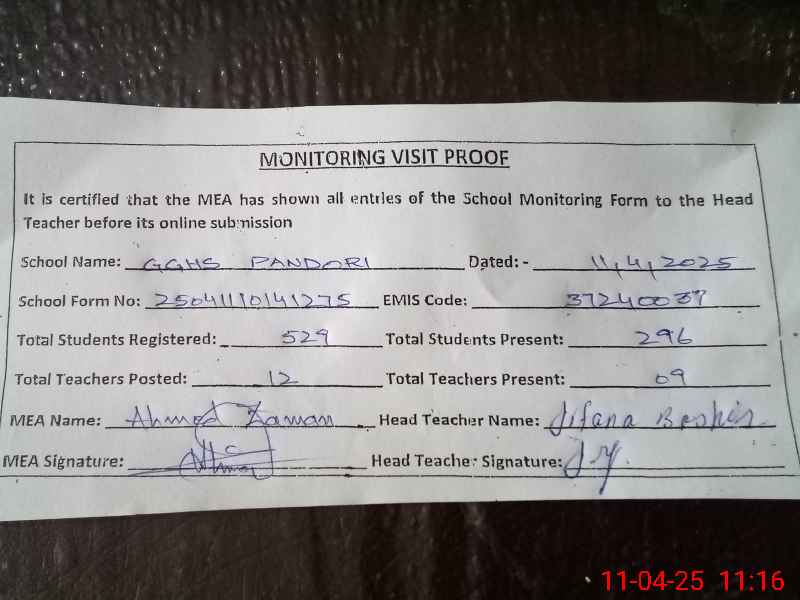 MONITORING VISIT PROOF
It is certified that the MEA has shown all entries of the School Monitoring Form to the Head
Teacher before its online submission
School Name: GGHS PANDORI Dated: - 11,4,2025
School Form No: 25041110141275 EMIS Code: 37240037
Total Students Registered: 529 Total Students Present: 296
Total Teachers Posted: 12 Total Teachers Present: 09
MEA Name: Ahmed Zaman Head Teacher Name: Bashir
MEA Signature: Head Teacher Signature:
11-04-25 11:16